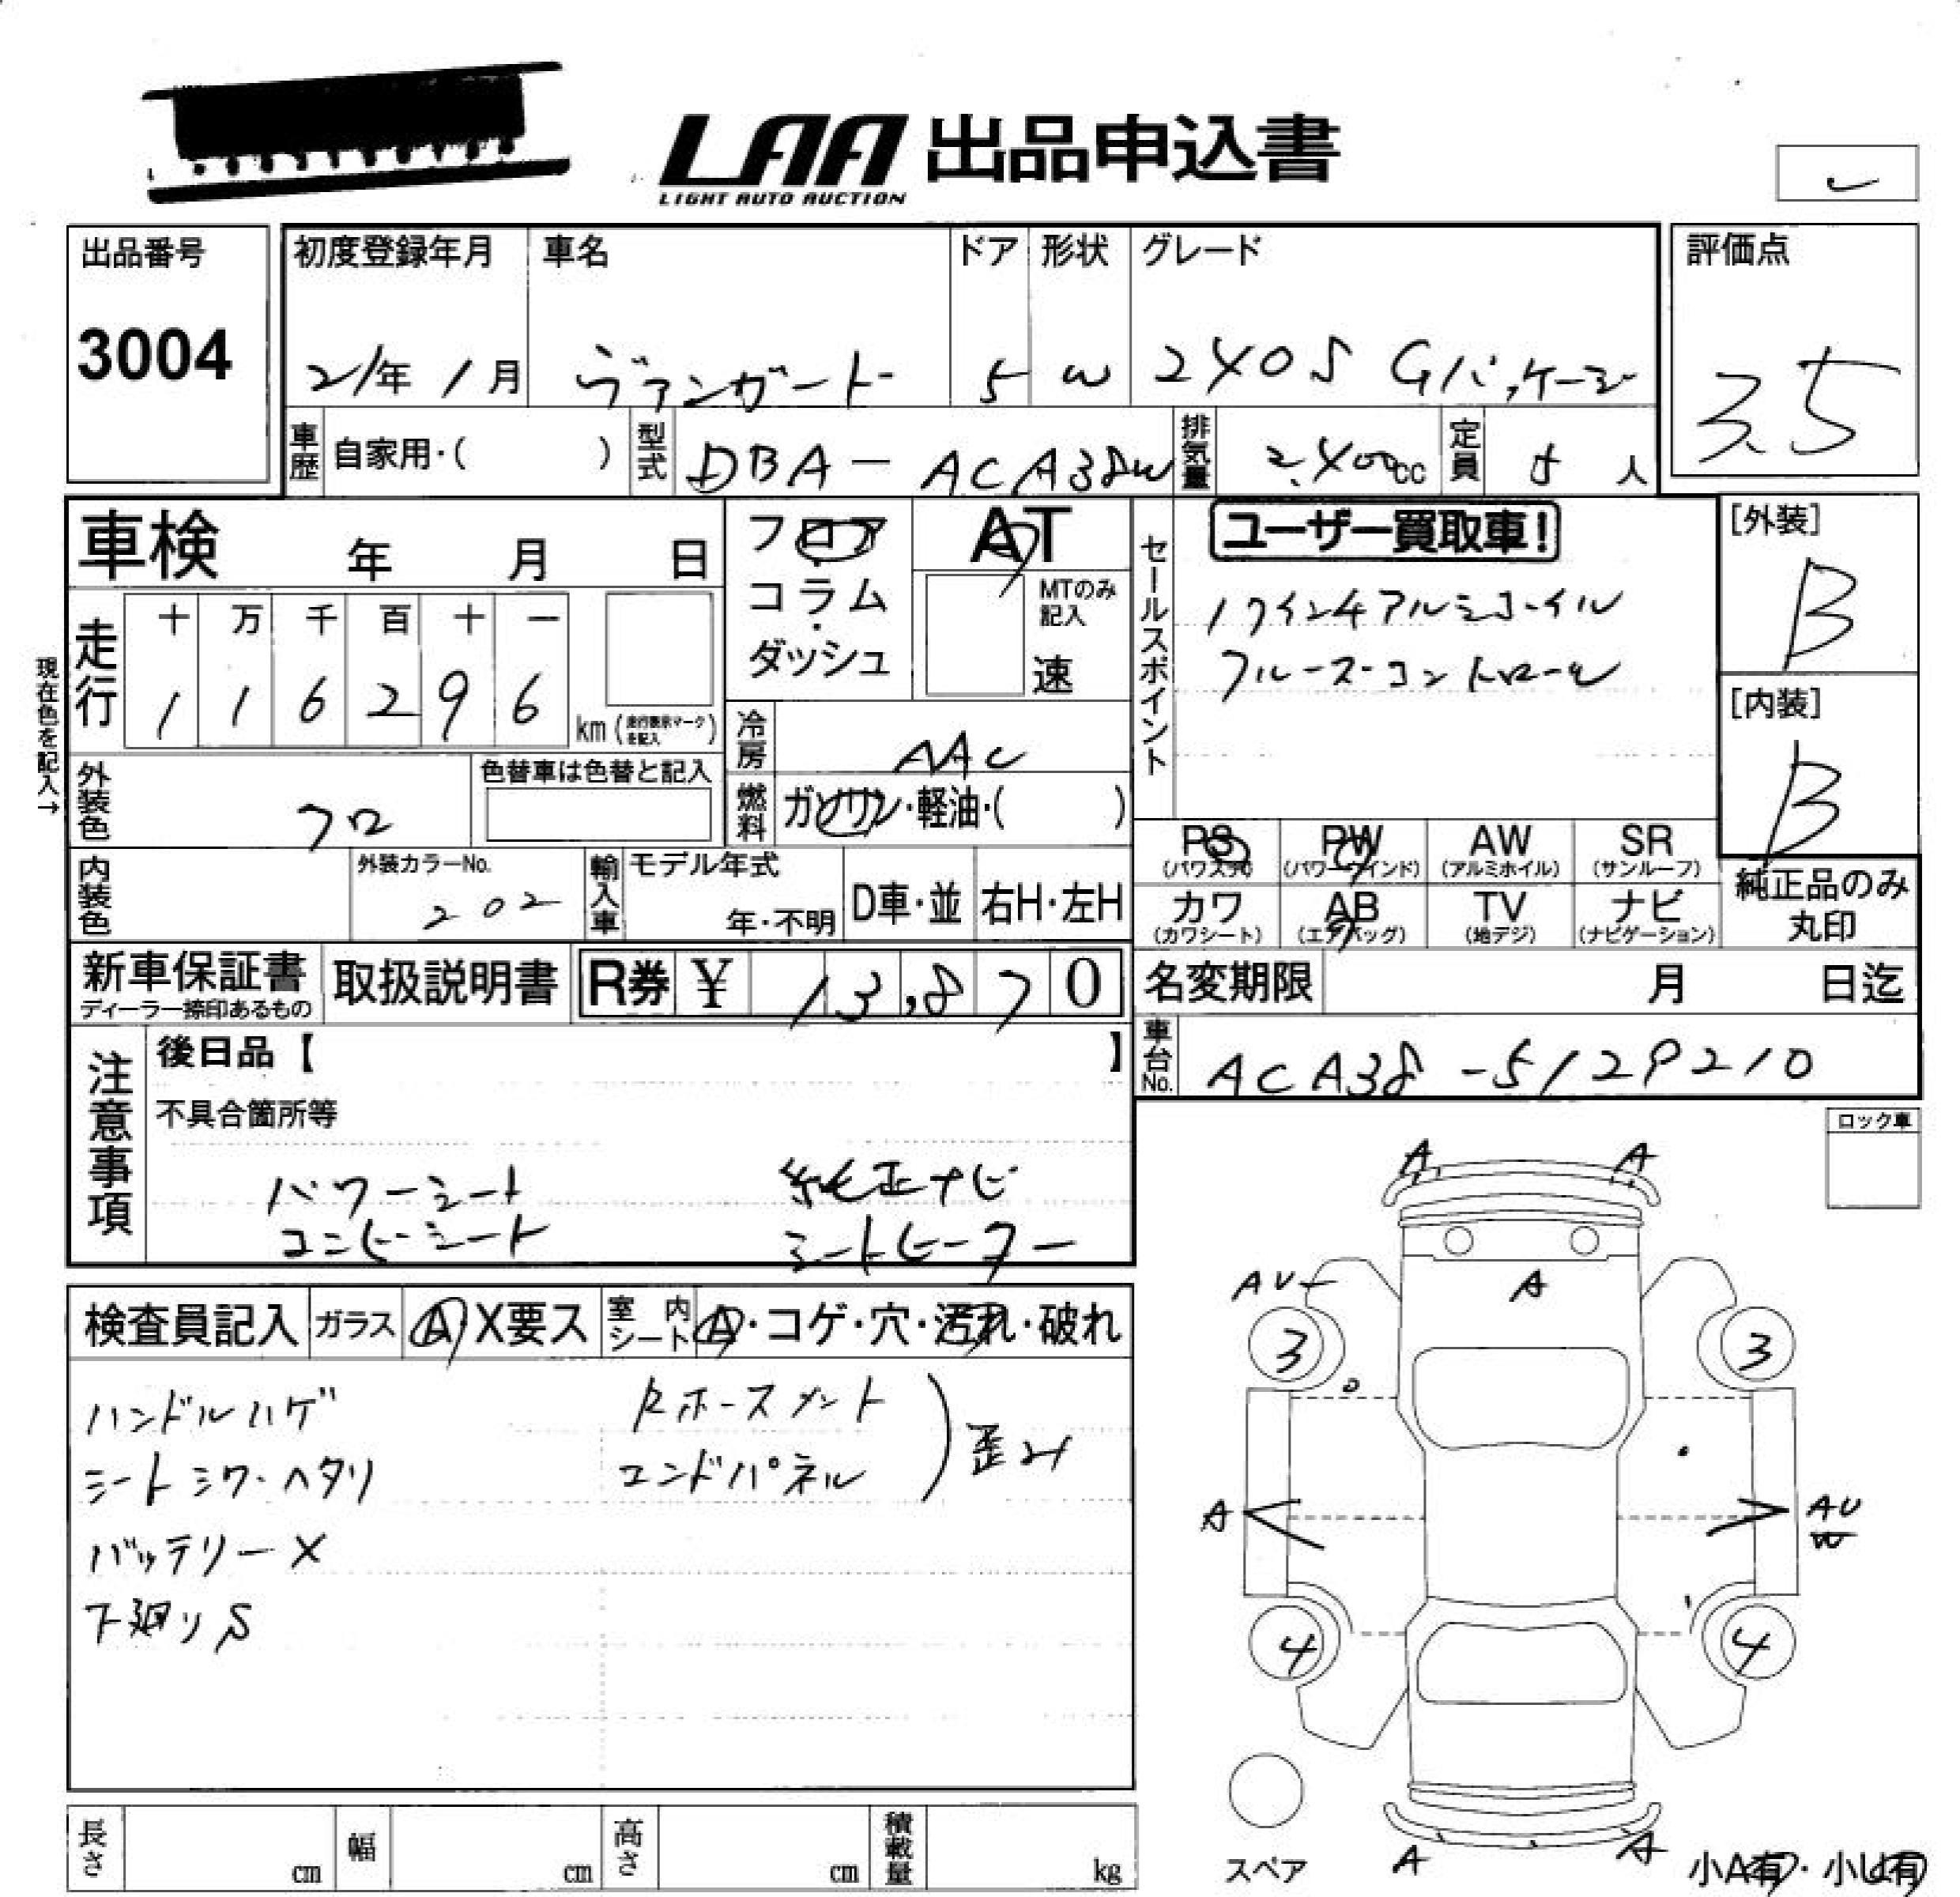 LAA 出品申込書
LIGHT AUTO AUCTION
出品番号
3004
初度登録年月
21年 1月
車名
ヴァンガード
ドア
5
形状
W
グレード
240S Gパッケージ
評価点
3.5
車歴
自家用・( )
型式
DBA-ACA38W
排気量
2,400cc
定員
5人
車検 年 月 日
走行
十 万 千 百 十 一
1 1 6 2 9 6
km (走行表示マークを記入)
現在色を記入→
フロア
・
コラム
・
ダッシュ
AT
MTのみ
記入
速
冷房
AAC
燃料
ガソリン・軽油・( )
セールスポイント
ユーザー買取車!
17インチアルミホイル
クルーズコントロール
[外装]
B
[内装]
B
外装色
クロ
色替車は色替と記入
内装色
外装カラーNo.
202
輸入車
モデル年式
年・不明
D車・並
右H・左H
PS
(パワステ)
PW
(パワーウインド)
AW
(アルミホイル)
SR
(サンルーフ)
カワ
(カワシート)
AB
(エアバッグ)
TV
(地デジ)
ナビ
(ナビゲーション)
純正品のみ
丸印
新車保証書
ディーラー捺印あるもの
取扱説明書
R券 ¥ 13,870
名変期限 月 日迄
車台No.
ACA38-5129210
注意事項
後日品【 】
不具合箇所等
パワーシート 純正ナビ
コンビシート シートヒーター
ロック車
検査員記入
ガラス
A X要ス
室内
シート
A・コゲ・穴・汚れ・破れ
ハンドルハゲ
シートシワ・ヘタリ
バッテリーX
下廻りS
Rホースメント
エンドパネル
歪み
A A
AU
A
3 3
A
AU
W
4 4
A A
スペア
小A有・小U有
長さ cm
幅 cm
高さ cm
積載量 kg